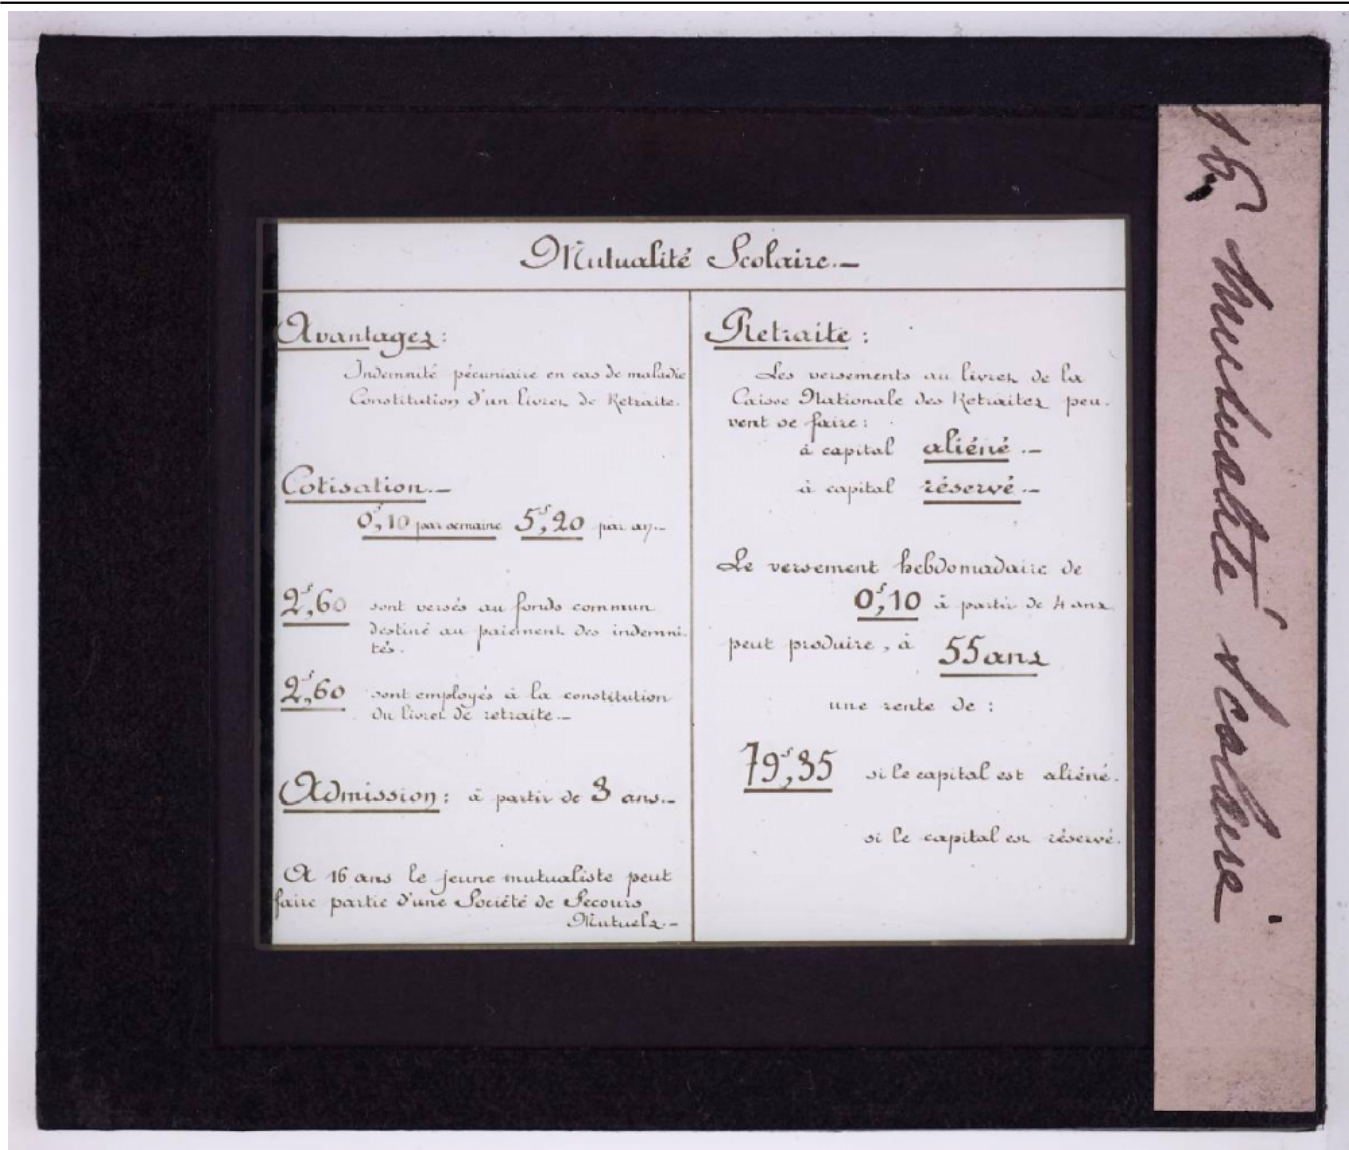 Mutualité Scolaire.-
Avantages:
Indemnité pécuniaire en cas de maladie
Constitution d'un livret de Retraite.
Cotisation.-
0f,10 par semaine 5f,20 par an.-
2f,60 sont versés au fonds commun
destiné au paiement des indemni-
tés.
2f,60 sont employés à la constitution
du livret de retraite.-
Admission: à partir de 3 ans.-
A 16 ans le jeune mutualiste peut
faire partie d'une Société de Secours
Mutuels.-
Retraite:
Les versements au livret de la
Caisse Nationale des Retraites peu-
vent se faire:
à capital aliéné.-
à capital réservé.-
Le versement hebdomadaire de
0f,10 à partir de 4 ans
peut produire, à 55 ans
une rente de:
79f,35 si le capital est aliéné.
si le capital est réservé.
Mutualité scolaire